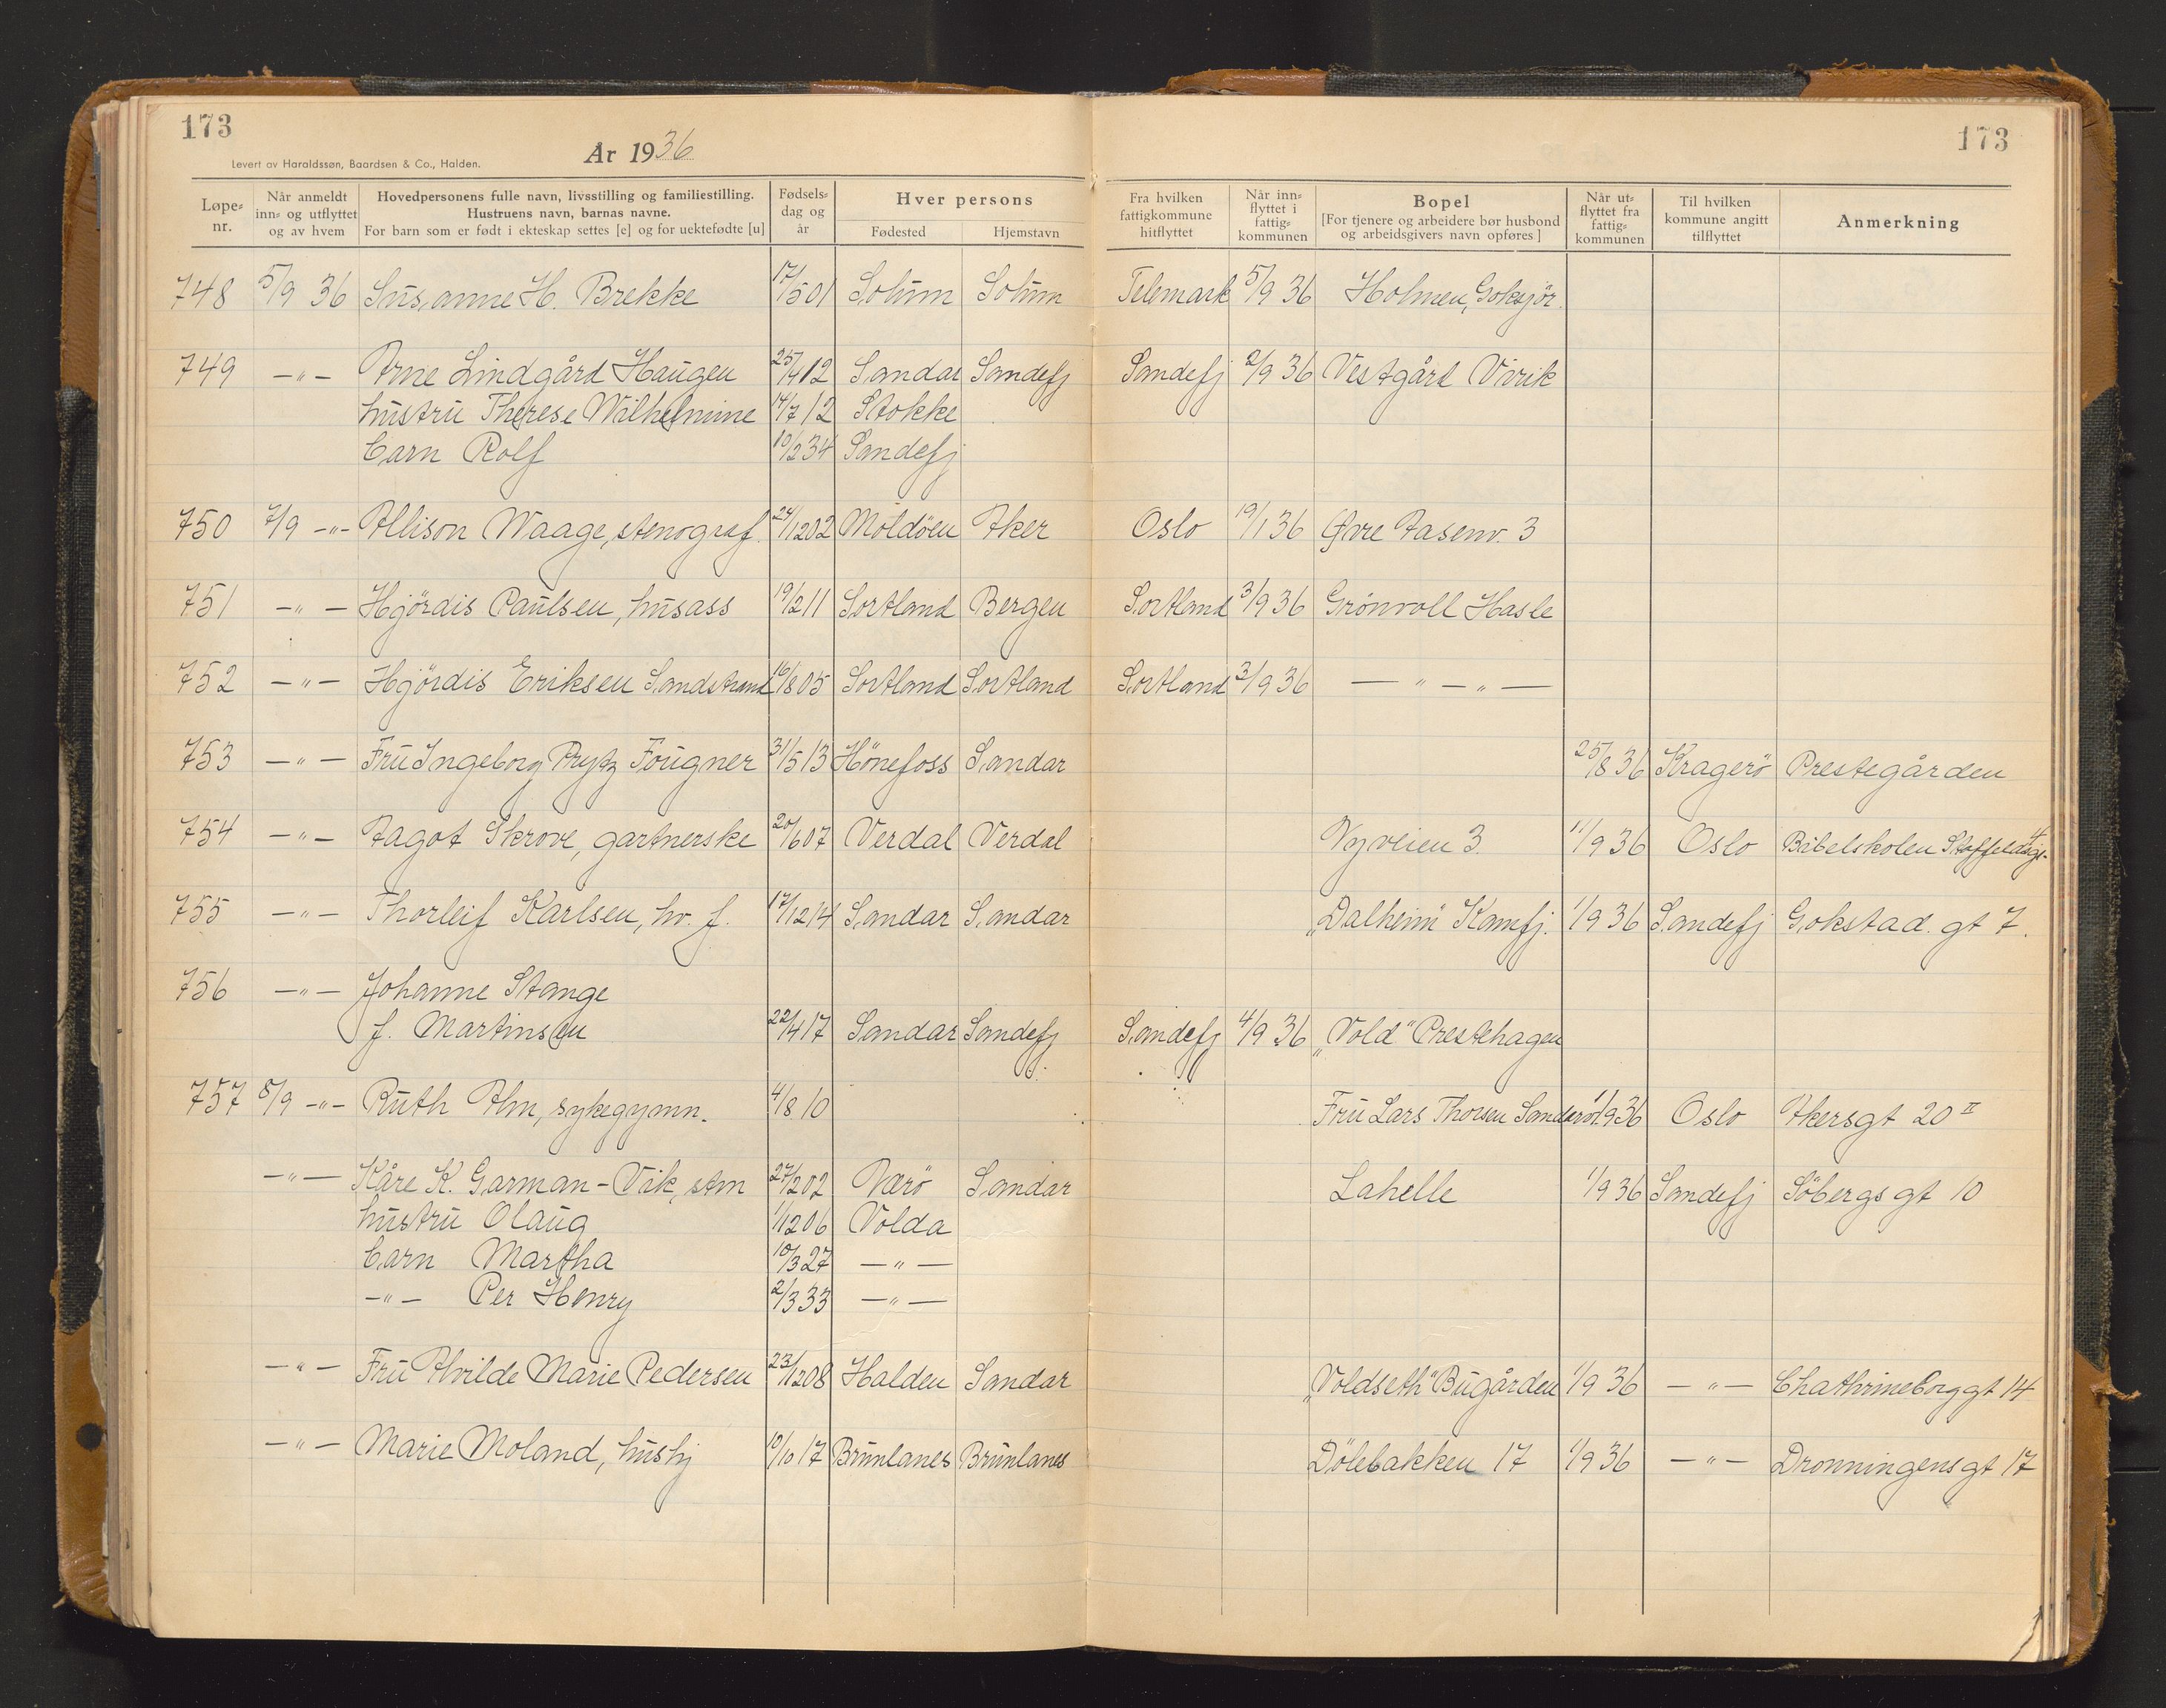 173
173
Levert av Haraldssøn, Baardsen & Co., Halden.
År 1936
Løpe-nr.
Når anmeldt inn- og utflyttet og av hvem
Hovedpersonens fulle navn, livsstilling og familiestilling.
Hustruens navn, barnas navne.
For barn som er født i ekteskap settes [e] og for uektefødte [u]
Fødsels-dag og år
Hver persons
Fødested
Hjemstavn
Fra hvilken fattigkommune hitflyttet
Når inn-flyttet i fattig-kommunen
Bopel
[For tjenere og arbeidere bør husbond og arbeidsgivers navn opføres]
Når ut-flyttet fra fattig-kommunen
Til hvilken kommune angitt tilflyttet
Anmerkning
748 5/9 36 Susanne H. Brekke 17/5 01 Solum Solum Telemark 5/9 36 Holmen, Goksjör
749 -"- Arne Lindgård Haugen 25/4 12 Sandar Sandefj Sandefj 2/9 36 Vestgård Virik
hustru Therese Wilhelmine 14/7 12 Stokke
barn Rolf 10/2 34 Sandefj
750 7/9 -"- Allison Waage, stenograf. 24/12 02 Moldöen Aker Oslo 19/1 36 Øvre Åasenv. 3
751 -"- Hjördis Paulsen, husass 19/2 11 Sortland Bergen Sortland 3/9 36 Grönvoll Hasle
752 -"- Hjördis Eriksen Sandstrand 16/8 05 Sortland Sortland Sortland 3/9 36 -"-"-
753 -"- Fru Ingeborg Prytz Fougner 31/5 13 Hönefoss Sandar 25/8 36 Kragerö Prestegården
754 -"- Aagot Skrove, gartnerske 20/6 07 Verdal Verdal Nyveien 3. 11/9 36 Oslo Bibelskolen Staffeldtsgt. 4
755 -"- Thorleif Karlsen, hv. f. 17/12 14 Sandar Sandar "Dalheim" Kamfj. 1/9 36 Sandefj Gokstad. gt 7.
756 -"- Johanne Stange
f. Martinsen 22/4 17 Sandar Sandefj Sandefj 4/9 36 "Vold" Prestehagen
757 8/9 -"- Ruth Alm, sykegymn. 4/8 10 Fru Lars Thorsen Sanderö 1/9 36 Oslo Akersgt 20 II
-"- Kåre K. Garman-Vik, stm 27/2 02 Værö Sandar Lahelle 1/9 36 Sandefj Söbergs gt 10
hustru Olaug 1/12 06 Volda
barn Martha 10/3 27 -"-
-"- Per Henry 2/3 33 -"-
-"- Fru Alvilde Marie Pedersen 23/12 08 Halden Sandar "Voldseth" Bugården 1/9 36 -"- Chathrineborggt 14
-"- Marie Moland, hushj 10/10 17 Brunlanes Brunlanes Dölebakken 17 1/9 36 -"- Dronningens gt 17